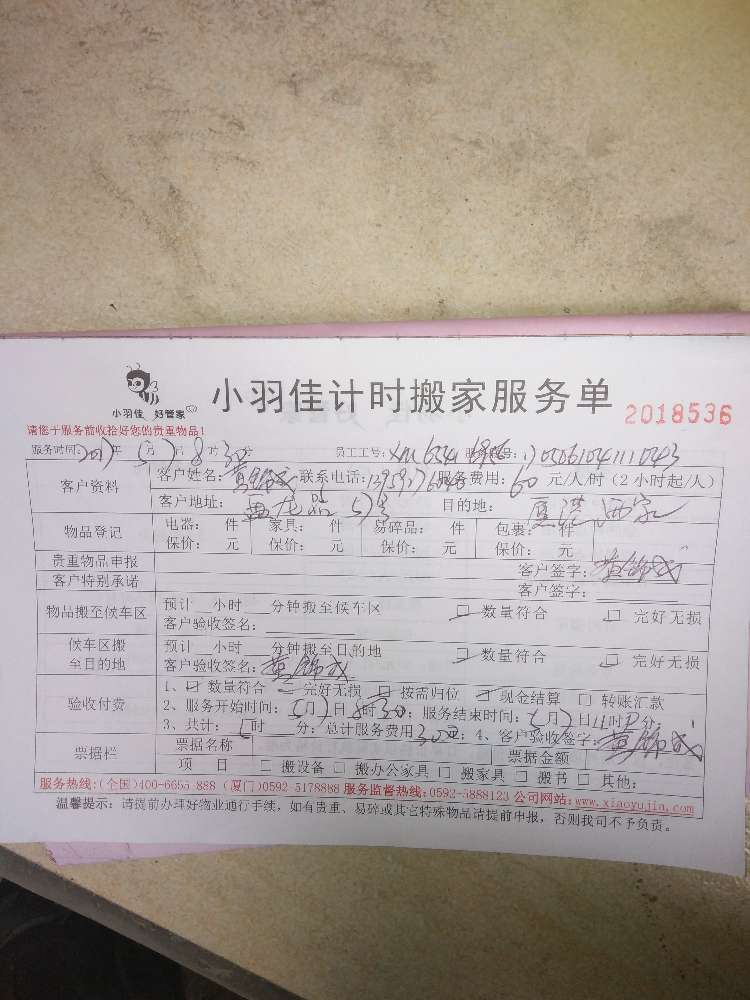 小羽佳 好管家
小羽佳计时搬家服务单
2018536
请您于服务前收拾好您的贵重物品!
服务时间: 年 5月7日8时30分 员工工号:
客户资料 客户姓名: 联系电话: 服务费用:60元/人/时(2小时起/人)
客户地址: 5号 目的地:
物品登记 电器: 件 家具: 件 易碎品: 件 包裹: 件
保价: 元 保价: 元 保价: 元 保价: 元
贵重物品申报 客户签字:
客户特别承诺 客户签字:
物品搬至候车区 预计__小时__分钟搬至候车区 □ 数量符合 □ 完好无损
客户验收签名:
候车区搬至目的地 预计__小时__分钟搬至目的地 □ 数量符合 □ 完好无损
客户验收签名:
验收付费 1、□ 数量符合 □ 完好无损 □ 按需归位 □ 现金结算 □ 转账汇款
2、服务开始时间: 月7日8时30分;服务结束时间: 月7日 时 分;
3、共计: 时__分;总计服务费用300元;4、客户验收签字:
票据栏 票据名称 票据金额
项 目 □ 搬设备 □ 搬办公家具 □ 搬家具 □ 搬书 □ 其他:
服务热线:(全国)400-6655-888 (厦门)0592-5178888 服务监督热线:0592-5888123 公司网站:www.xiaoyujia.com
温馨提示:请提前办理好物业通行手续,如有贵重、易碎或其它特殊物品请提前申报,否则我司不予负责。